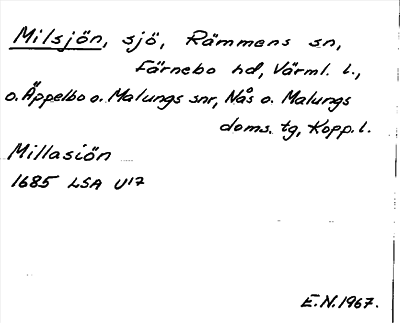 Milsjön, sjö, Rämmens sn,
Färnebo hd, Värml. l.,
o. Äppelbo o. Malungs snr, Nås o. Malungs
doms. tg, Kopp. l.
Millasiön
1685 LSA U17
E.N. 1967.